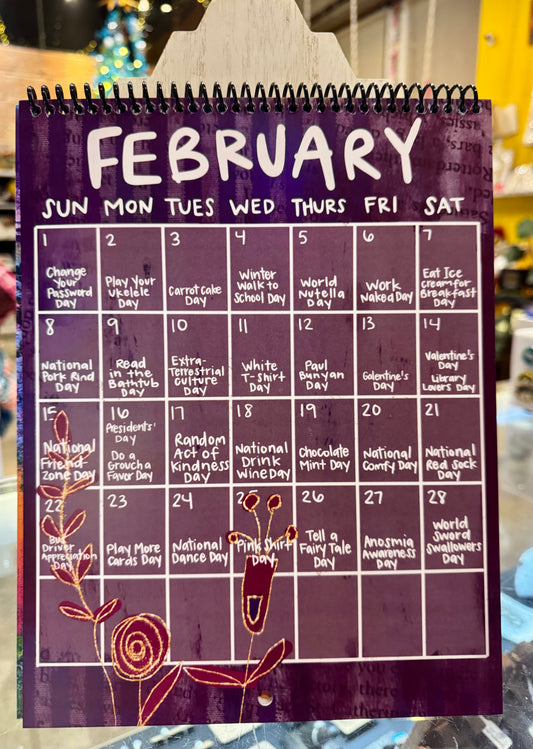 FEBRUARY
SUN MON TUES WED THURS FRI SAT
1
Change
Your
Password
Day
2
Play Your
Ukelele
Day
3
Carrot Cake
Day
4
Winter
Walk to
School Day
5
World
Nutella
Day
6
Work
Naked Day
7
Eat Ice
cream for
Breakfast
Day
8
National
Pork Rind
Day
9
Read
in the
Bathtub
Day
10
Extra-
Terrestrial
Culture
Day
11
White
T-Shirt
Day
12
Paul
Bunyan
Day
13
Galentine's
Day
14
Valentine's
Day
Library
Lovers Day
15
National
Friend-
Zone Day
16
Presidents'
Day
Do a
Grouch a
Favor Day
17
Random
Act of
Kindness
Day
18
National
Drink
Wine Day
19
Chocolate
Mint Day
20
National
Comfy Day
21
National
Red Sock
Day
22
Driver
Appreciation
Day
23
Play More
Cards Day
24
National
Dance Day
Pink Shirt
Day
26
Tell a
Fairy Tale
Day
27
Anosmia
Awareness
Day
28
World
Sword
Swallowers
Day